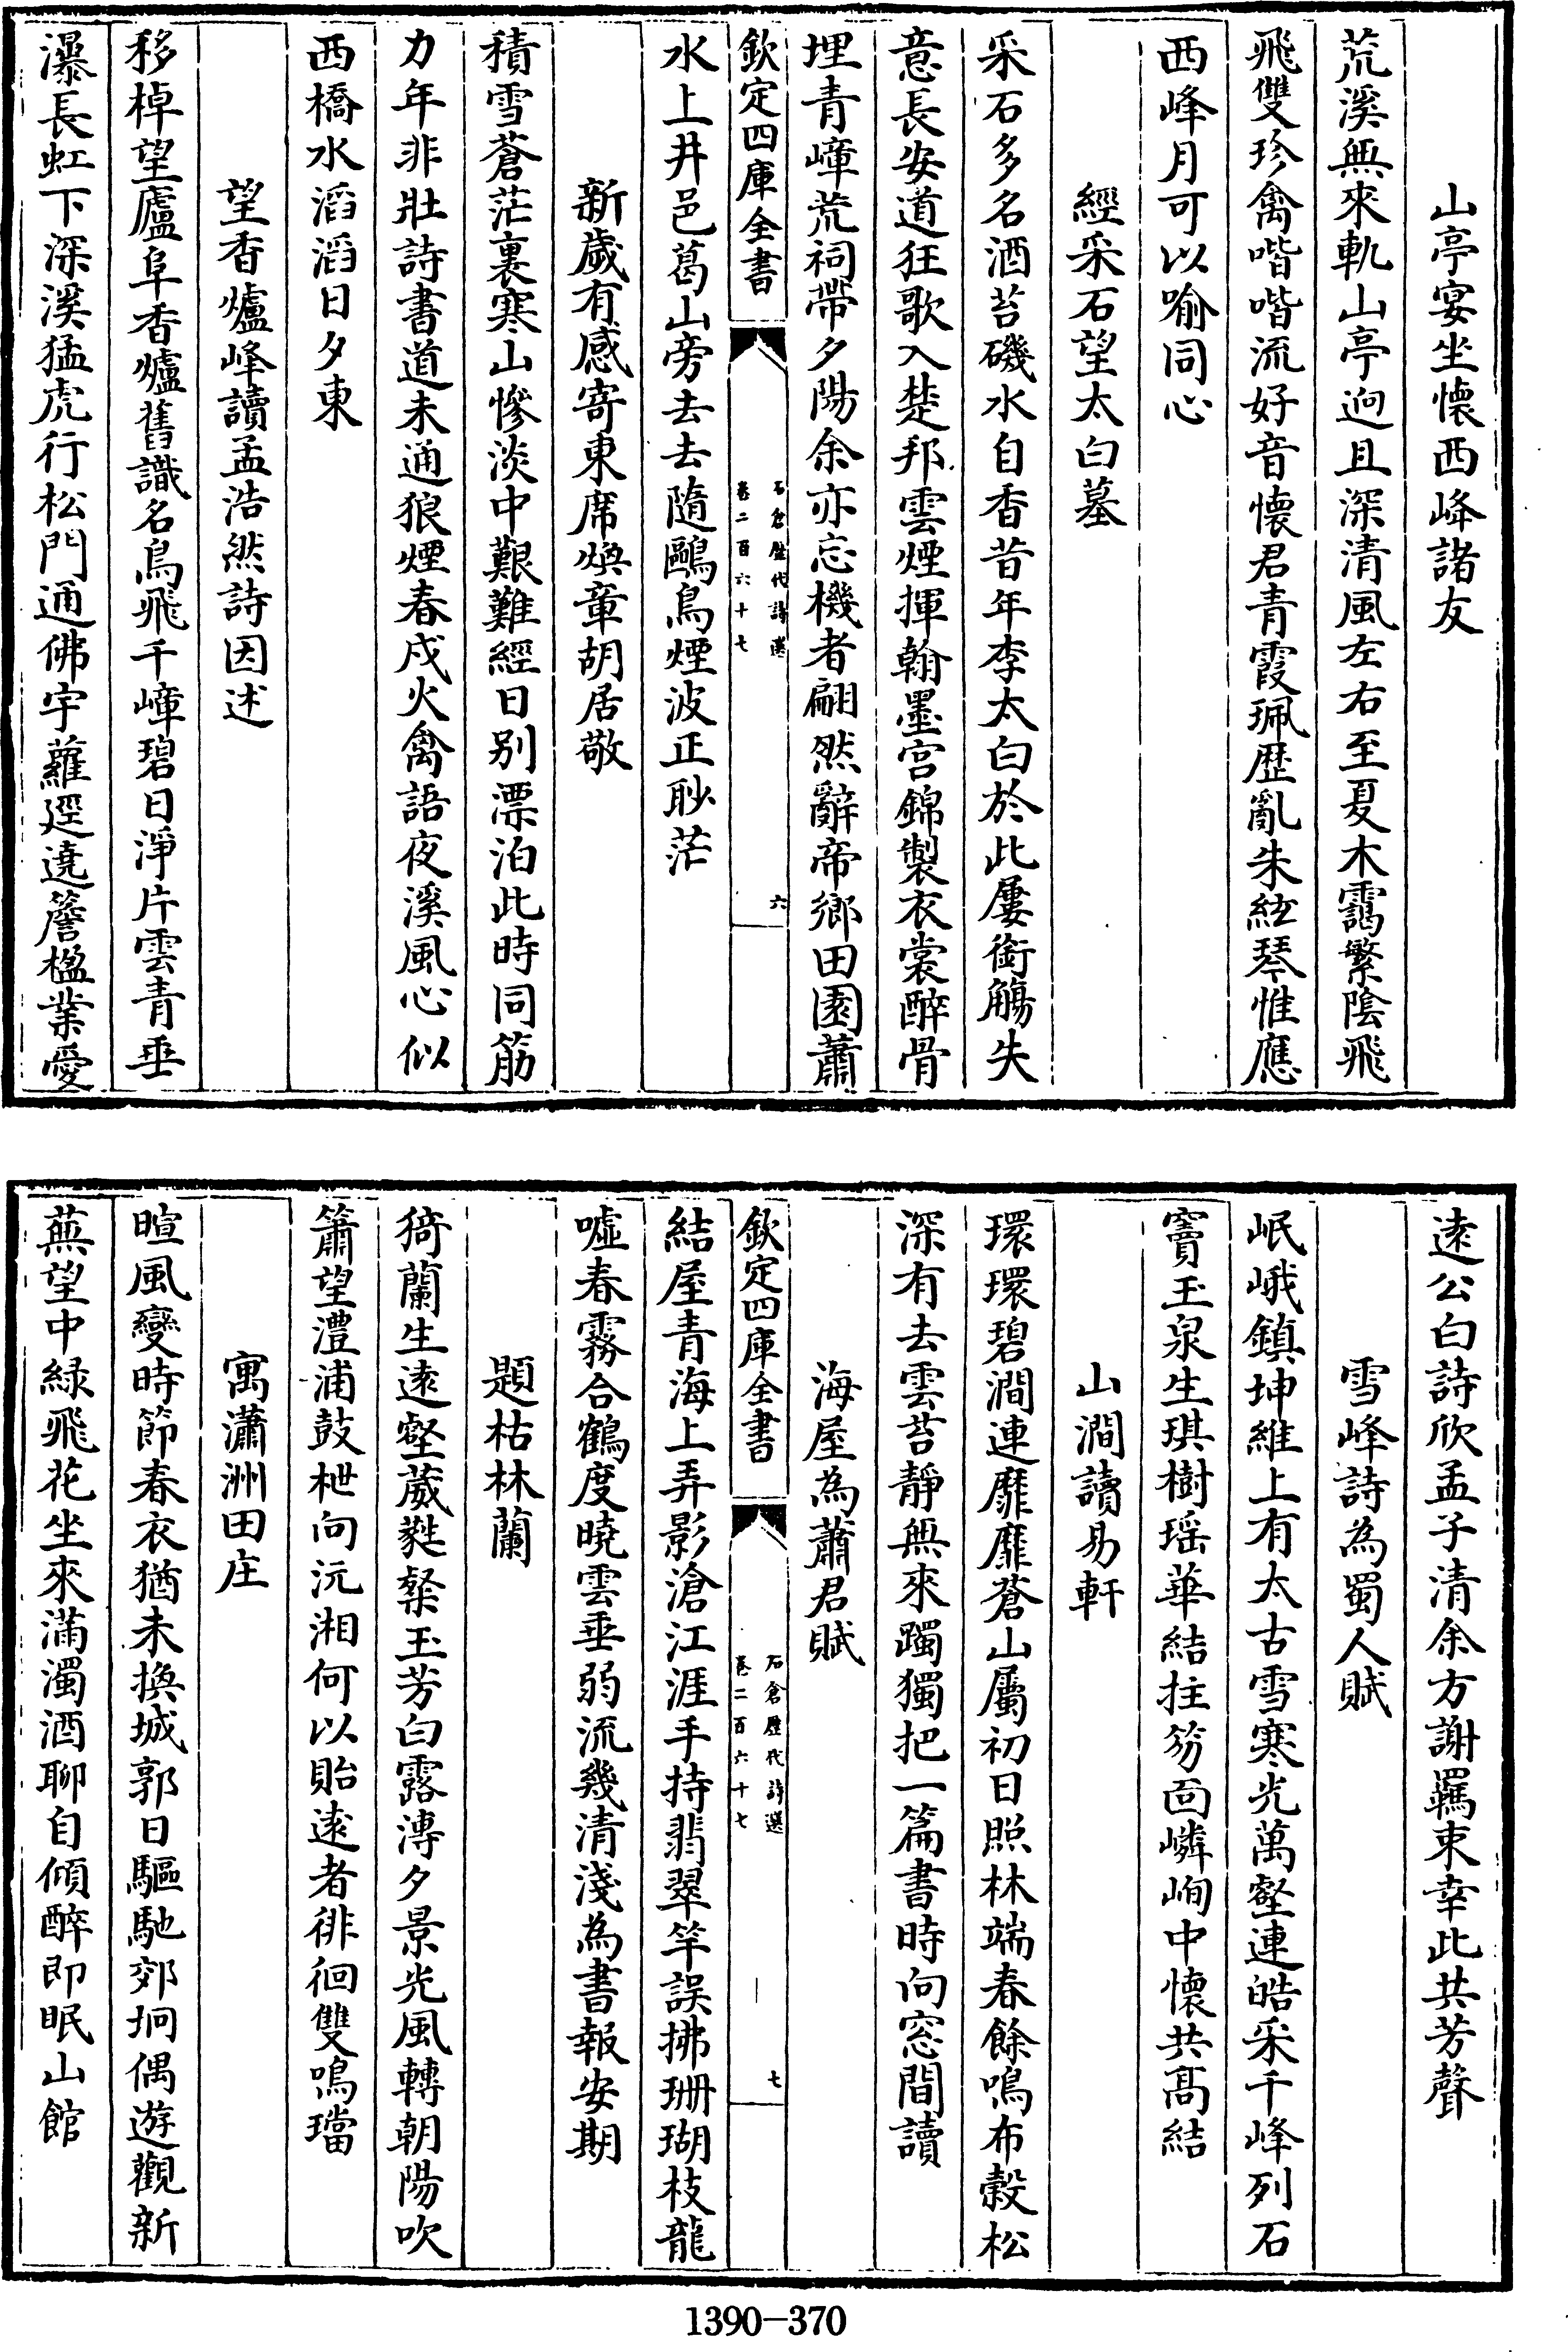 山亭宴坐懷西峰諸友
荒溪無來軌山亭逈且深清風左右至夏木靄繁陰飛
飛雙珍禽喈喈流好音懷君青霞珮歴亂朱絃琴惟應
西峰月可以喻同心
經采石望太白墓
采石多名酒苔磯水自香昔年李太白於此屢銜觴失
意長安道狂歌入楚邦雲煙揮翰墨宫錦製衣裳醉骨
埋青嶂荒祠帶夕陽余亦忘機者翩然辭帝鄉田園蕭
欽定四庫全書
石倉歴代詩選
卷二百六十七
六
水上井邑葛山旁去去隨鷗鳥煙波正眇茫
新歲有感寄東席煥章胡居敬
積雪蒼茫裏寒山慘淡中艱難經日别漂泊此時同筋
力年非壯詩書道未通狼煙春戍火禽語夜溪風心似
西橋水滔滔日夕東
望香爐峰讀孟浩然詩因述
移棹望廬阜香爐舊識名鳥飛千嶂碧日淨片雲青垂
瀑長虹下深溪猛虎行松門通佛宇蘿逕遶簷楹業愛
逺公白詩欣孟子清余方謝羈束幸此共芳聲
雪峰詩為蜀人賦
岷峨鎮坤維上有太古雪寒光萬壑連皓采千峰列石
竇玉泉生琪樹瑶華結拄笏面嶙峋中懷共髙結
山澗讀易軒
環環碧澗連靡靡蒼山屬初日照林端春餘鳴布榖松
深有去雲苔靜無來躅獨把一篇書時向窓間讀
海屋為蕭君賦
欽定四庫全書
石倉歴代詩選
卷二百六十七
七
結屋青海上弄影滄江涯手持翡翠竿誤拂珊瑚枝龍
嘘春霧合鶴度曉雲垂弱流幾清淺為書報安期
題枯林蘭
猗蘭生逺壑葳蕤粲玉芳白露漙夕景光風轉朝陽吹
簫望澧浦鼓枻向沅湘何以貽逺者徘徊雙鳴璫
寓瀟洲田庄
暄風變時節春衣猶未換城郭日驅馳郊坰偶遊觀新
蕪望中緑飛花坐來滿濁酒聊自傾醉即眠山館
1390-370